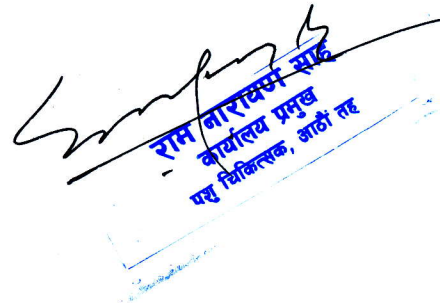 राम नारायण साह
कार्यालय प्रमुख
पशु चिकित्सक, आठौं तह